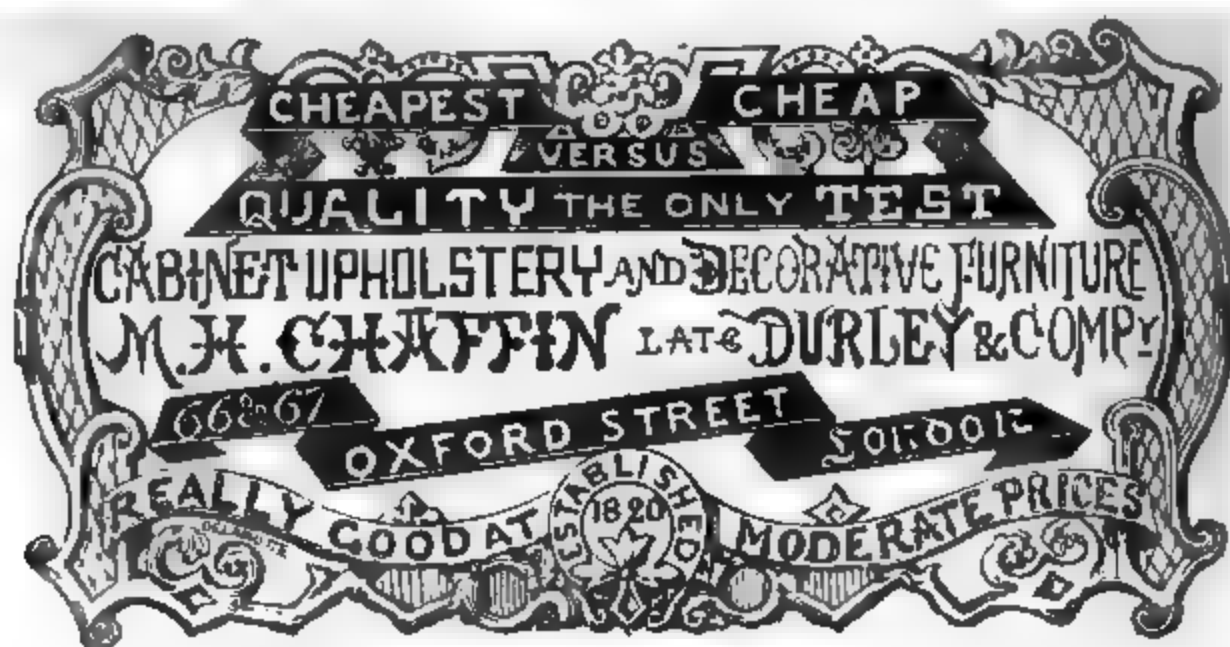 CHEAPEST VERSUS CHEAP
QUALITY THE ONLY TEST
CABINET UPHOLSTERY AND DECORATIVE FURNITURE
M.H. CHAFFIN LATE DURLEY & COMPY
66 & 67 OXFORD STREET LONDON
REALLY GOOD AT MODERATE PRICES
ESTABLISHED
1820